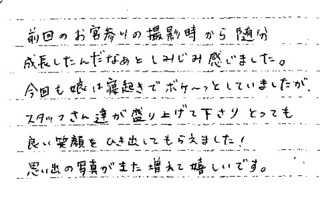 前回のお宮参りの撮影時から随分
成長したんだなぁとしみじみ感じました。
今回も娘は寝起きでボケ〜っとしていましたが、
スタッフさん達が盛り上げて下さり とっても
良い笑顔をひき出してもらえました!
思い出の写真がまた増えて嬉しいです。